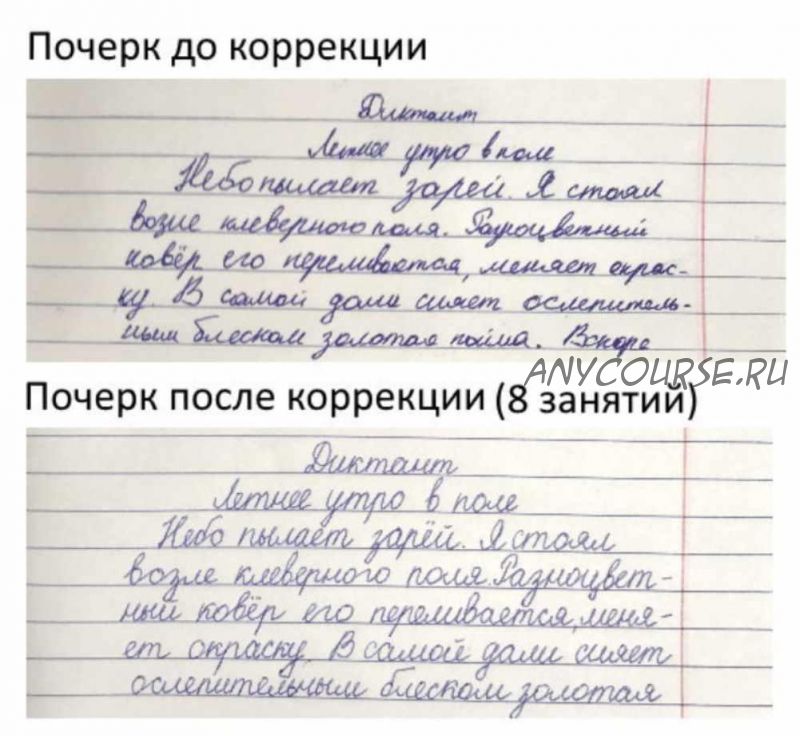 Почерк до коррекции
Диктант
Летнее утро в поле
Небо пылает зарей. Я стоял
возле клеверного поля. Разноцветный
ковёр его переливается, меняет окрас-
ку. В самой дали сияет ослепитель-
ным блеском золотая пойма. Вскоре
ANYCOURSE.RU
Почерк после коррекции (8 занятий)
Диктант
Летнее утро в поле
Небо пылает зарёй. Я стоял
возле клеверного поля. Разноцвет-
ный ковёр его переливается, меня-
ет окраску. В самой дали сияет
ослепительным блеском золотая